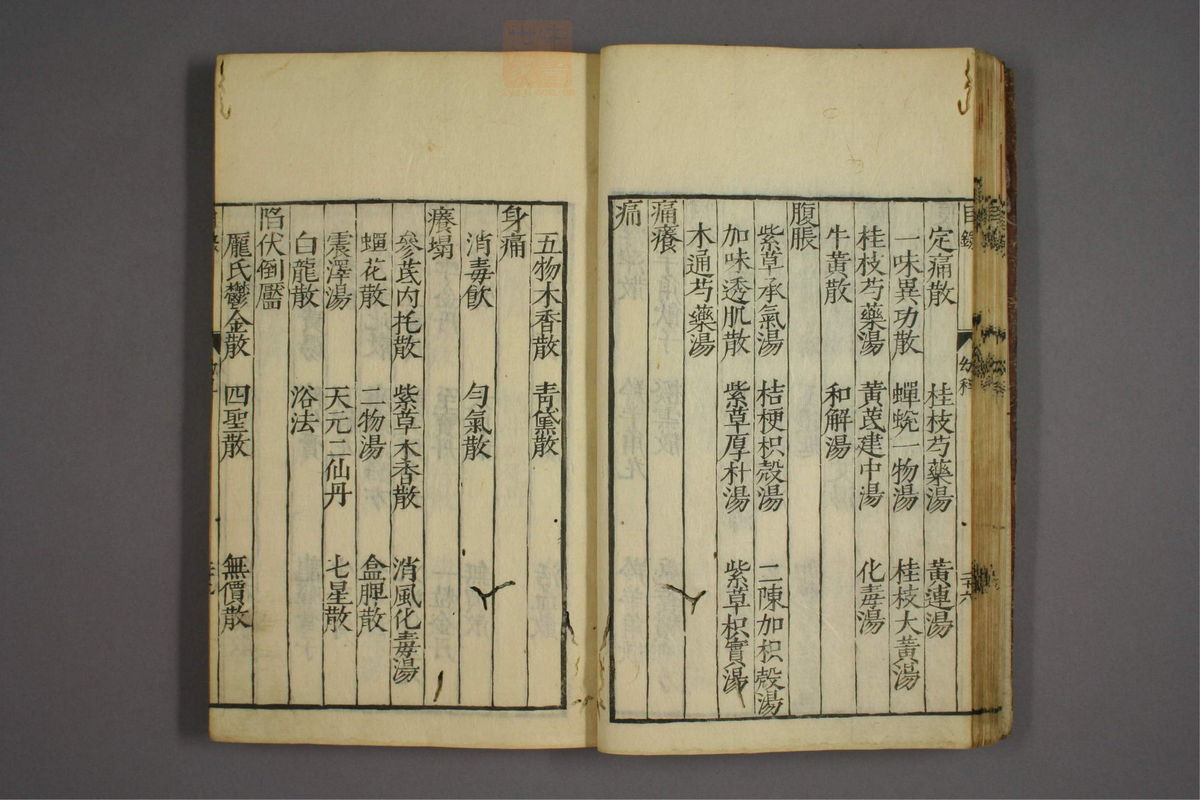 目錄 幼科 三十六
定痛散 桂枝芍藥湯 黃連湯
一味異功散 蟬蛻一物湯 桂枝大黃湯
桂枝芍藥湯 黃芪建中湯 化毒湯
牛黃散 和解湯
腹脹
紫草承氣湯 桔梗枳殼湯 二陳加枳殼湯
加味透肌散 紫草厚朴湯 紫草枳實湯
木通芍藥湯
痛癢
痛
五物木香散 靑黛散
身痛
消毒飮 勻氣散
癢塌
參芪內托散 紫草木香散 消風化毒湯
蟬花散 二物湯 盒脾散
震澤湯 天元二仙丹 七星散
白龍散 浴法
陷伏倒靨
龐氏鬱金散 四聖散 無價散